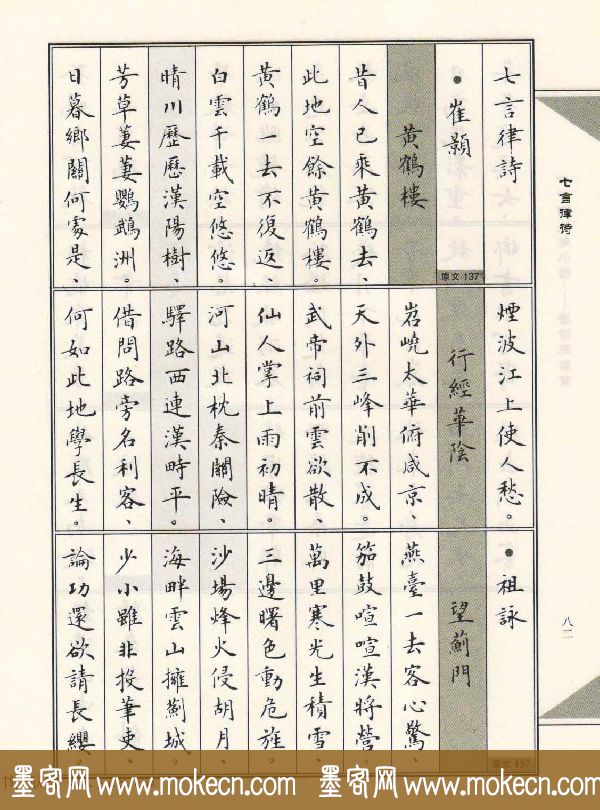 七言律詩
•崔顥
黃鶴樓
原文 137
昔人已乘黃鶴去、
此地空餘黃鶴樓。
黃鶴一去不復返、
白雲千載空悠悠。
晴川歷歷漢陽樹、
芳草萋萋鸚鵡洲。
日暮鄉關何處是、
煙波江上使人愁。
行經華陰
岧嶢太華俯咸京、
天外三峰削不成。
武帝祠前雲欲散、
仙人掌上雨初晴。
河山北枕秦關險、
驛路西連漢畤平。
借問路旁名利客、
何如此地學長生。
•祖詠
望薊門
原文 137
燕臺一去客心驚、
笳鼓喧喧漢將營。
萬里寒光生積雪、
三邊曙色動危旌。
沙場烽火侵胡月、
海畔雲山擁薊城。
少小雖非投筆吏、
論功還欲請長纓。
七言律詩
八二
墨客网 www.mokecn.com 墨客网 www.mokecn.com